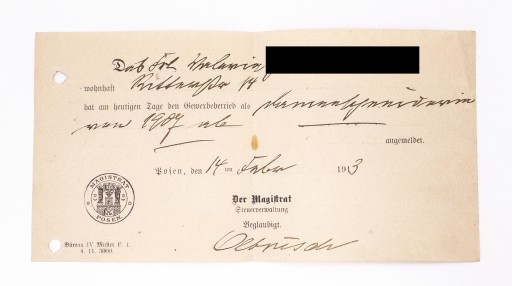 Daß Frl Valeria
wohnhaft Ritterstr 14
hat am heutigen Tage den Gewerbebetrieb als Damenschneiderin
von 1907 ab
angemeldet.
Posen, den 14 ten Febr 1913
Der Magistrat
Steuerverwaltung
Beglaubigt.
MAGISTRAT
POSEN
Bureau IV Muster F. 1.
4. 11. 3000.